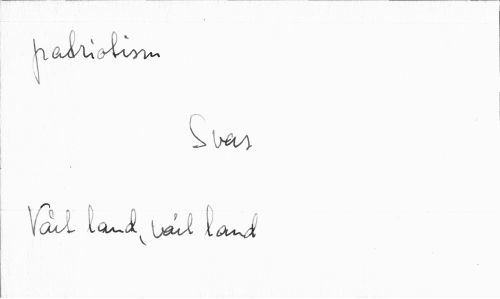 patriotism
Svar
Vårt land, vårt land